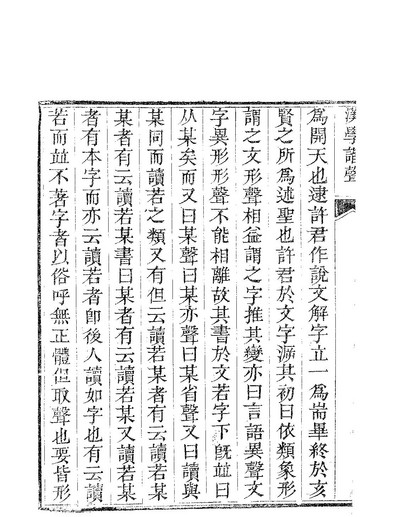 漢學諧聲
爲開天也逮許君作說文解字立一爲耑畢終於亥
賢之所爲述聖也許君於文字溯其初曰依類象形
謂之文形聲相益謂之字推其變亦曰言語異聲文
字異形形聲不能相離故其書於文若字下旣竝曰
从某矣而又曰某聲曰某亦聲曰某省聲又曰讀與
某同而讀若之類又有但云讀若某者有云讀若某
某者有云讀若某書曰某者有云讀若某又讀若某
者有本字而亦云讀若者卽後人讀如字也有云讀
若而竝不著字者以俗呼無正體但取聲也要皆形